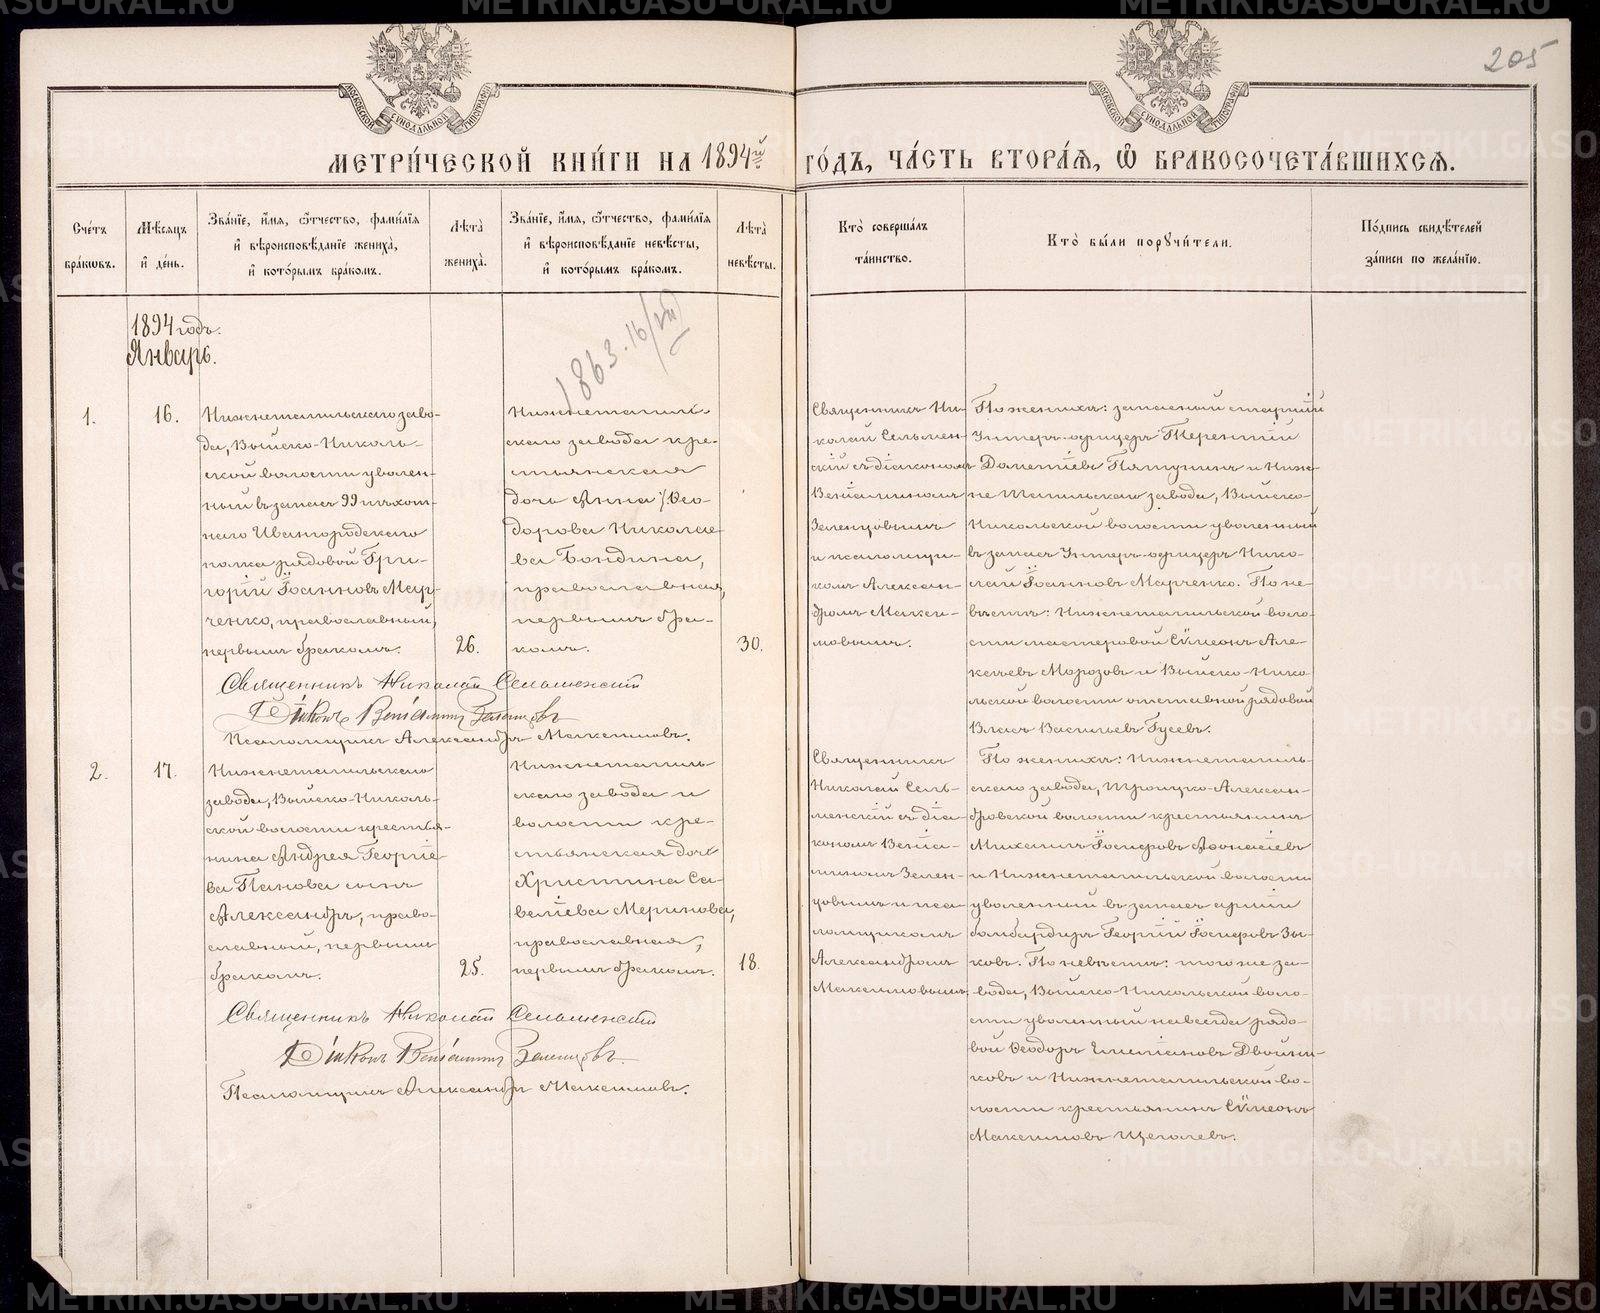 205
МЕТРИ́ЧЕСКОЙ КНИ́ГИ НА 1894й ГО́ДЪ, ЧА́СТЬ ВТОРА́Ѧ, Ѽ БРАКОСОЧЕТА́ВШИХСѦ.
Сче́тъ бра́кѡвъ.
Мѣ́сѧцъ и҆ де́нь.
Зва́нїе, и҆́мѧ, ѻ҆́тчество, фами́лїѧ
и҆ вѣроисповѣ́данїе жениха̀,
и҆ кото́рымъ бра́комъ.
Лѣ́та жениха̀.
Зва́нїе, и҆́мѧ, ѻ҆́тчество, фами́лїѧ
и҆ вѣроисповѣ́данїе невѣ́сты,
и҆ кото́рымъ бра́комъ.
Лѣ́та невѣ́сты.
Кто̀ соверша́лъ
та́инство.
Кто̀ бы́ли порꙋчи́тели.
По́дпись свидѣ́телей
за́писи по жела́нїю.
1894 годъ.
Январь.
1863.16/
1.
16.
Нижнетагильскаго заво-
да, Выйско-Николь-
ской волости уволен-
ный въ запас 99 пѣхот-
наго Ивангородскаго
полка рядовой Гри-
горій Іоанновъ Мар-
ченко, православный,
первымъ бракомъ.
26.
Нижнетагиль-
скаго завода кре-
стьянская
дочь Анна Ѳео-
дорова Николае-
ва Бондина,
православная,
первымъ бра-
комъ.
30.
Священникъ Ни-
колай Сельмен-
скій съ діакономъ
Веніаминомъ
Зеленцовымъ
и псаломщи-
комъ Алексан-
дромъ Макси-
мовымъ.
По женихѣ: запасный старшій
Унтеръ-офицеръ Терентій
Дометіевъ Пятунинъ и Ниж-
не Тагильскаго завода, Выйско-
Никольской волости уволенный
въ запасъ Унтеръ-офицеръ Нико-
лай Іоанновъ Марченко. По не-
вѣстѣ: Нижнетагильской воло-
сти мастеровой Сѵмеонъ Але-
ксѣевъ Морозовъ и Выйско-Нико-
льской волости отставной рядовой
Власъ Васильевъ Гусевъ.
Священникъ Николай Сельменскій
Діаконъ Веніаминъ Зеленцовъ
Псаломщикъ Александръ Максимовъ.
2.
17.
Нижнетагильскаго
завода, Выйско-Николь-
ской волости крестья-
нина Андрея Георгіе-
ва Панова сынъ
Александръ, право-
славный, первымъ
бракомъ.
25.
Нижнетагиль-
скаго завода и
волости кре-
стьянская дочь
Христина Са-
веліева Меринова,
православная,
первымъ бракомъ.
18.
Священникъ
Николай Сель-
менскій съ діа-
кономъ Веніа-
миномъ Зелен-
цовымъ и пса-
ломщикомъ
Александромъ
Максимовымъ.
По женихѣ: Нижнетагиль-
скаго завода, Троицко-Алексан-
дровской волости крестьянинъ
Михаилъ Іосифовъ Аѳонасіевъ
и Нижнетагильской волости
уволенный въ запасъ арміи
бомбардиръ Георгій Іосифовъ Зы-
ковъ. По невѣстѣ: того же за-
вода, Выйско-Никольской воло-
сти уволенный навсегда рядо-
вой Ѳеодоръ Двойни-
ковъ и Нижнетагильской во-
лости крестьянинъ Сѵмеонъ
Максимовъ Щеголевъ.
Священникъ Николай Сельменскій
Діаконъ Веніаминъ Зеленцовъ.
Псаломщикъ Александръ Максимовъ.
METRIKI.GASO-URAL.RU